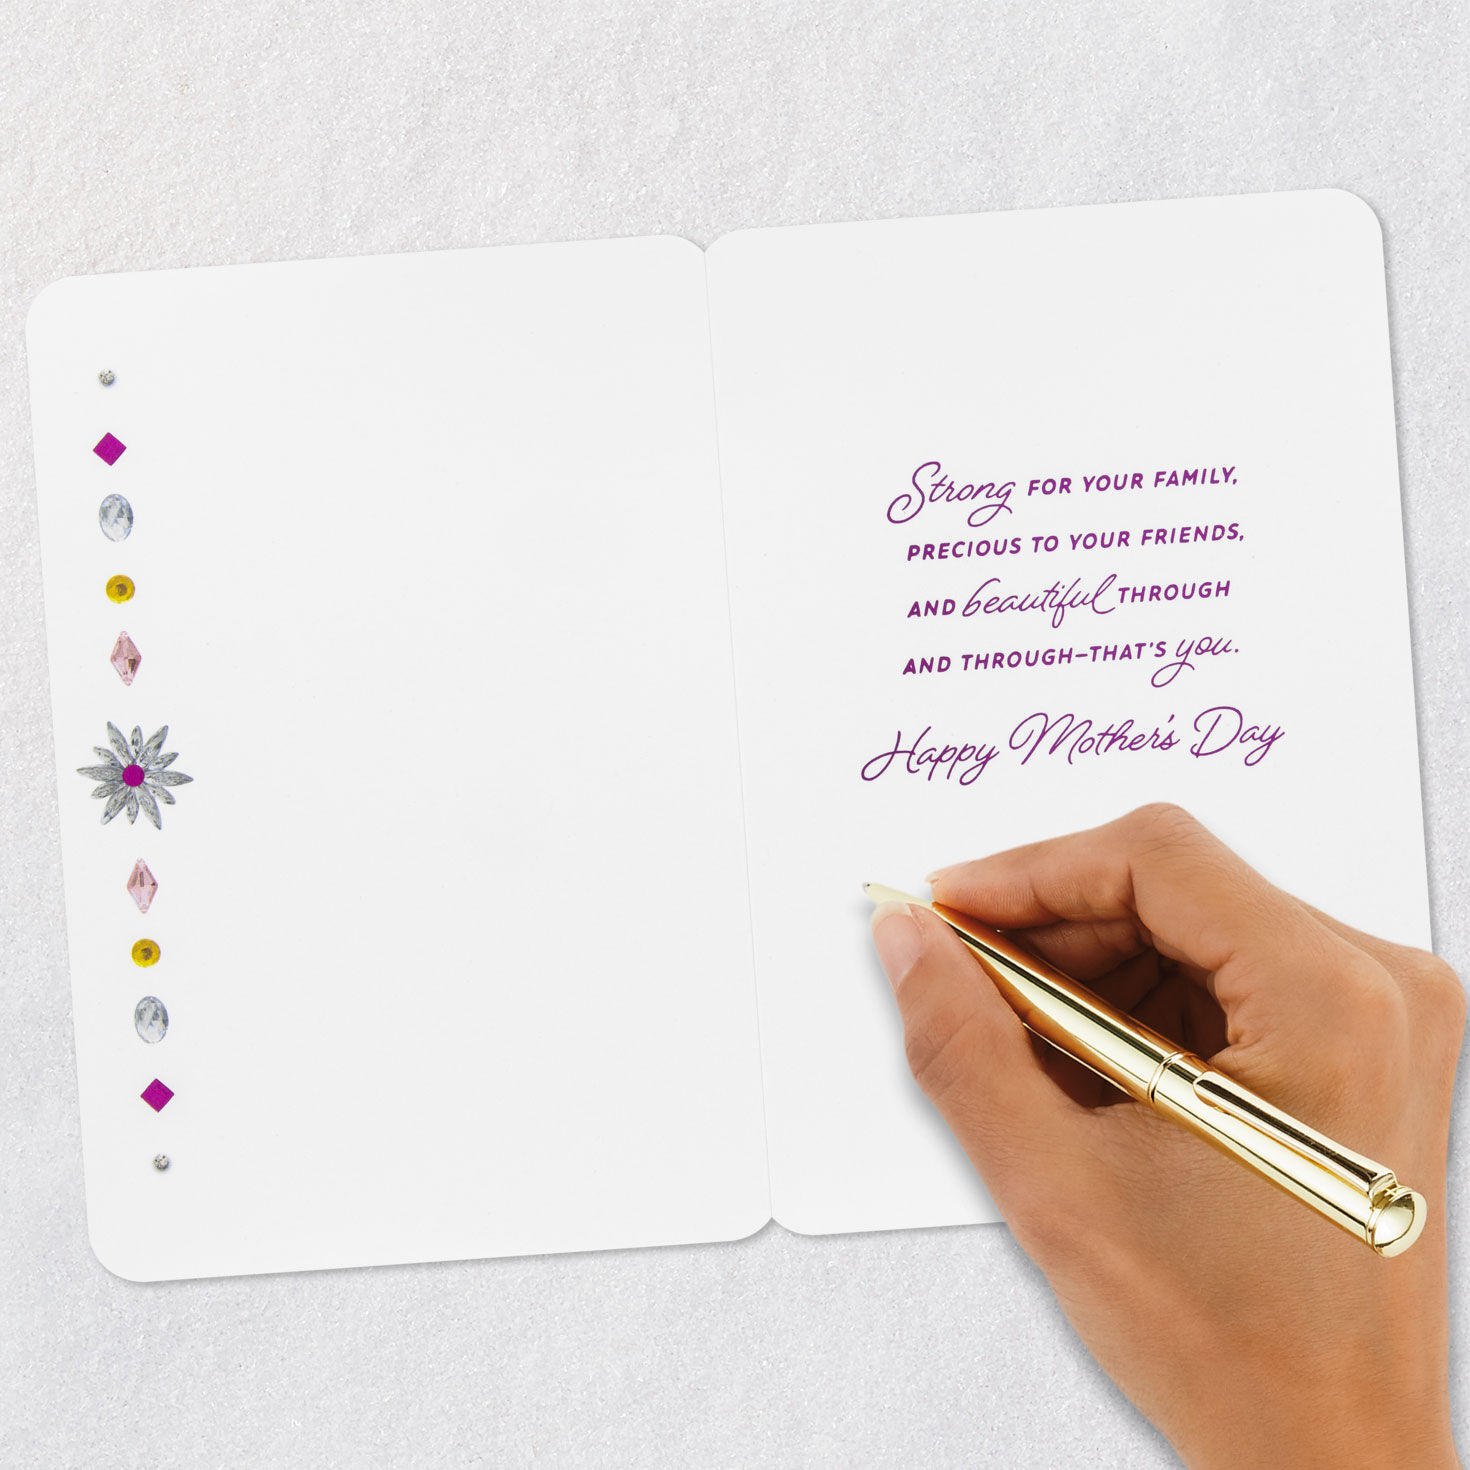 Strong FOR YOUR FAMILY,
PRECIOUS TO YOUR FRIENDS,
AND beautiful THROUGH
AND THROUGH–THAT'S you.
Happy Mother's Day